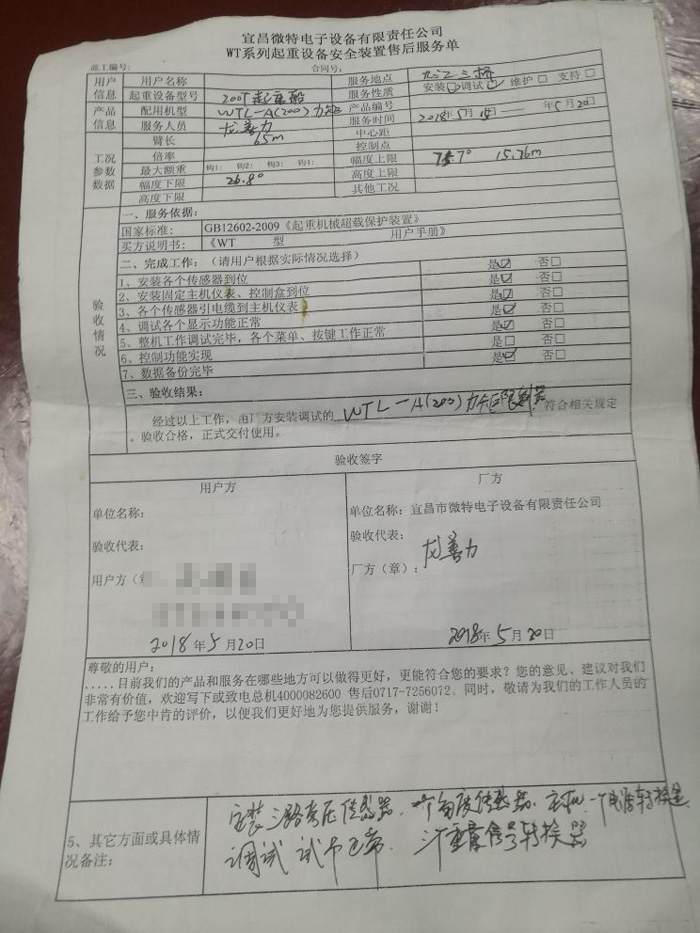 宜昌微特电子设备有限责任公司
WT系列起重设备安全装置售后服务单
派工编号: 合同号:
用户信息 用户名称 服务地点 九江三桥
起重设备型号 200T起重船 服务性质 安装☑ 调试☑ 维护□ 支持□
产品信息 配用机型 WTL-A(200)力矩 产品编号
服务人员 龙善力 服务时间 2018年5月15日—— 年5月20日
工况参数数据 臂长 65m 中心距
倍率 控制点
最大额重 钩1: 钩2: 钩3: 钩1: 幅度上限 75.7° 15.76m
幅度下限 26.8° 高度上限
高度下限 其他工况
验收情况
一、服务依据:
国家标准: GB12602-2009《起重机械超载保护装置》
买方说明书: 《WT 型 用户手册》
二、完成工作:(请用户根据实际情况选择)
1、安装各个传感器到位 是☑ 否□
2、安装固定主机仪表、控制盒到位 是☑ 否□
3、各个传感器引电缆到主机仪表 是☑ 否□
4、调试各个显示功能正常 是☑ 否□
5、整机工作调试完毕,各个菜单、按键工作正常 是☑ 否□
6、控制功能实现 是□ 否□
7、数据备份完毕 是☑ 否□
三、验收结果:
经过以上工作,由厂方安装调试的 WTL-A(200)力矩限制器 符合相关规定
。验收合格,正式交付使用。
验收签字
用户方 厂方
单位名称: 单位名称: 宜昌市微特电子设备有限责任公司
验收代表: 验收代表: 龙善力
用户方(章 厂方(章):
2018年5月20日 2018年5月20日
尊敬的用户:
.....目前我们的产品和服务在哪些地方可以做得更好,更能符合您的要求?您的意见、建议对我们
非常有价值,欢迎写下或致电总机4000082600 售后0717-7256072。同时,敬请为我们的工作人员的
工作给予您中肯的评价,以便我们更好地为您提供服务,谢谢!
5、其它方面或具体情况备注:
安装三路变压传感器、一个角度传感器、主机、一个电源转换器
调试 试吊正常、 三个重量信号转换器